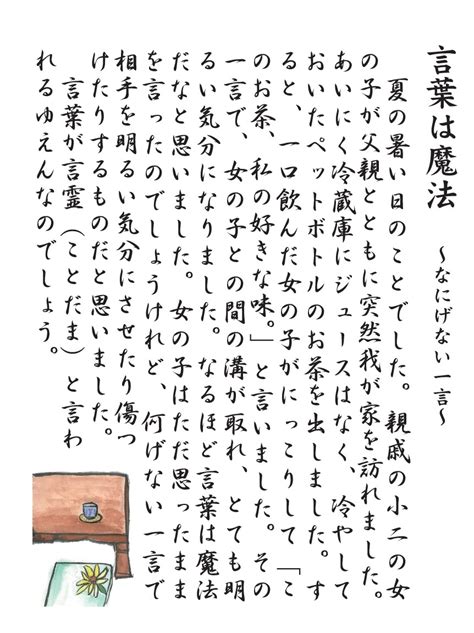 言葉は魔法　～なにげない一言～
　夏の暑い日のことでした。親戚の小二の女
の子が父親とともに突然我が家を訪れました。
あいにく冷蔵庫にジュースはなく、冷やして
おいたペットボトルのお茶を出しました。す
ると、一口飲んだ女の子がにっこりして「こ
のお茶、私の好きな味。」と言いました。その
一言で、女の子との間の溝が取れ、とても明
るい気分になりました。なるほど言葉は魔法
だなと思いました。女の子はただ思ったまま
を言ったのでしょうけれど、何げない一言で
相手を明るい気分にさせたり傷つ
けたりするものだと思いました。
　言葉が言霊（ことだま）と言わ
れるゆえんなのでしょう。